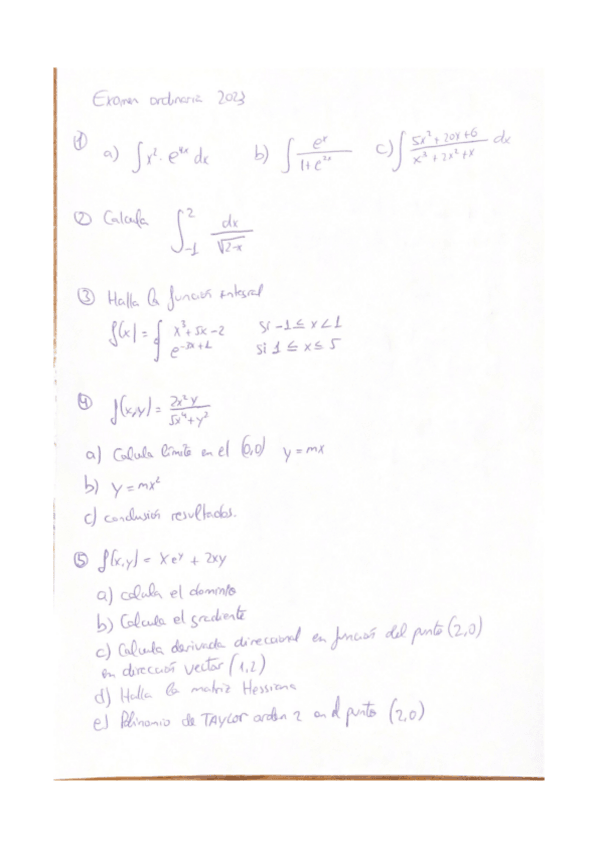 Examen ordinaria 2023
① a) ∫ x² · e^{4x} dx b) ∫ e^x / (1 + e^{2x}) c) ∫ (5x² + 20x + 6) / (x³ + 2x² + x) dx
② Calcula ∫_{-1}^{2} dx / √(2-x)
③ Halla la función integral
f(x) = { x³ + 5x - 2 si -1 ≤ x < 1
e^{-3x+1} si 1 ≤ x ≤ 5
④ f(x,y) = 2x²y / (5x⁴ + y²)
a) Calcula límite en el (0,0) y = mx
b) y = mx²
c) conclusión resultados.
⑤ f(x,y) = x e^y + 2xy
a) calcula el dominio
b) Calcula el gradiente
c) Calcula derivada direccional en función del punto (2,0)
en dirección vector (1,2)
d) Halla la matriz Hessiana
e) Polinomio de TAYLOR orden 2 en el punto (2,0)